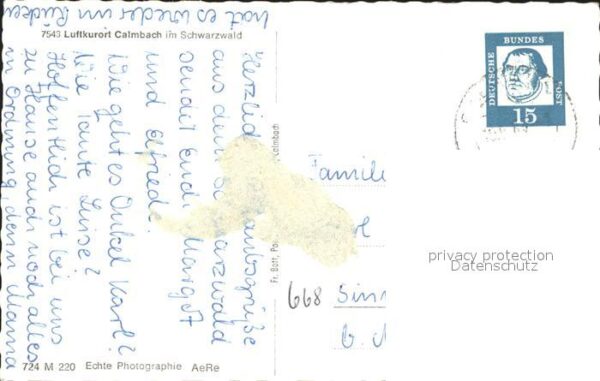 7543 Luftkurort Calmbach im Schwarzwald
Herzliche
aus dem Schwarzwald
sendet Euch Margot
und Elfriede.
Wie geht es Onkel Karl?
Wie Tante Luise?
Hoffentlich ist bei uns
zu Hause auch noch alles
in Ordnung, denn Mama
hat es wieder im Rücken
Familie
668 Sinn
DEUTSCHE BUNDES POST
15
Fr. Bott, Calmbach
privacy protection
Datenschutz
724 M 220 Echte Photographie AeRe